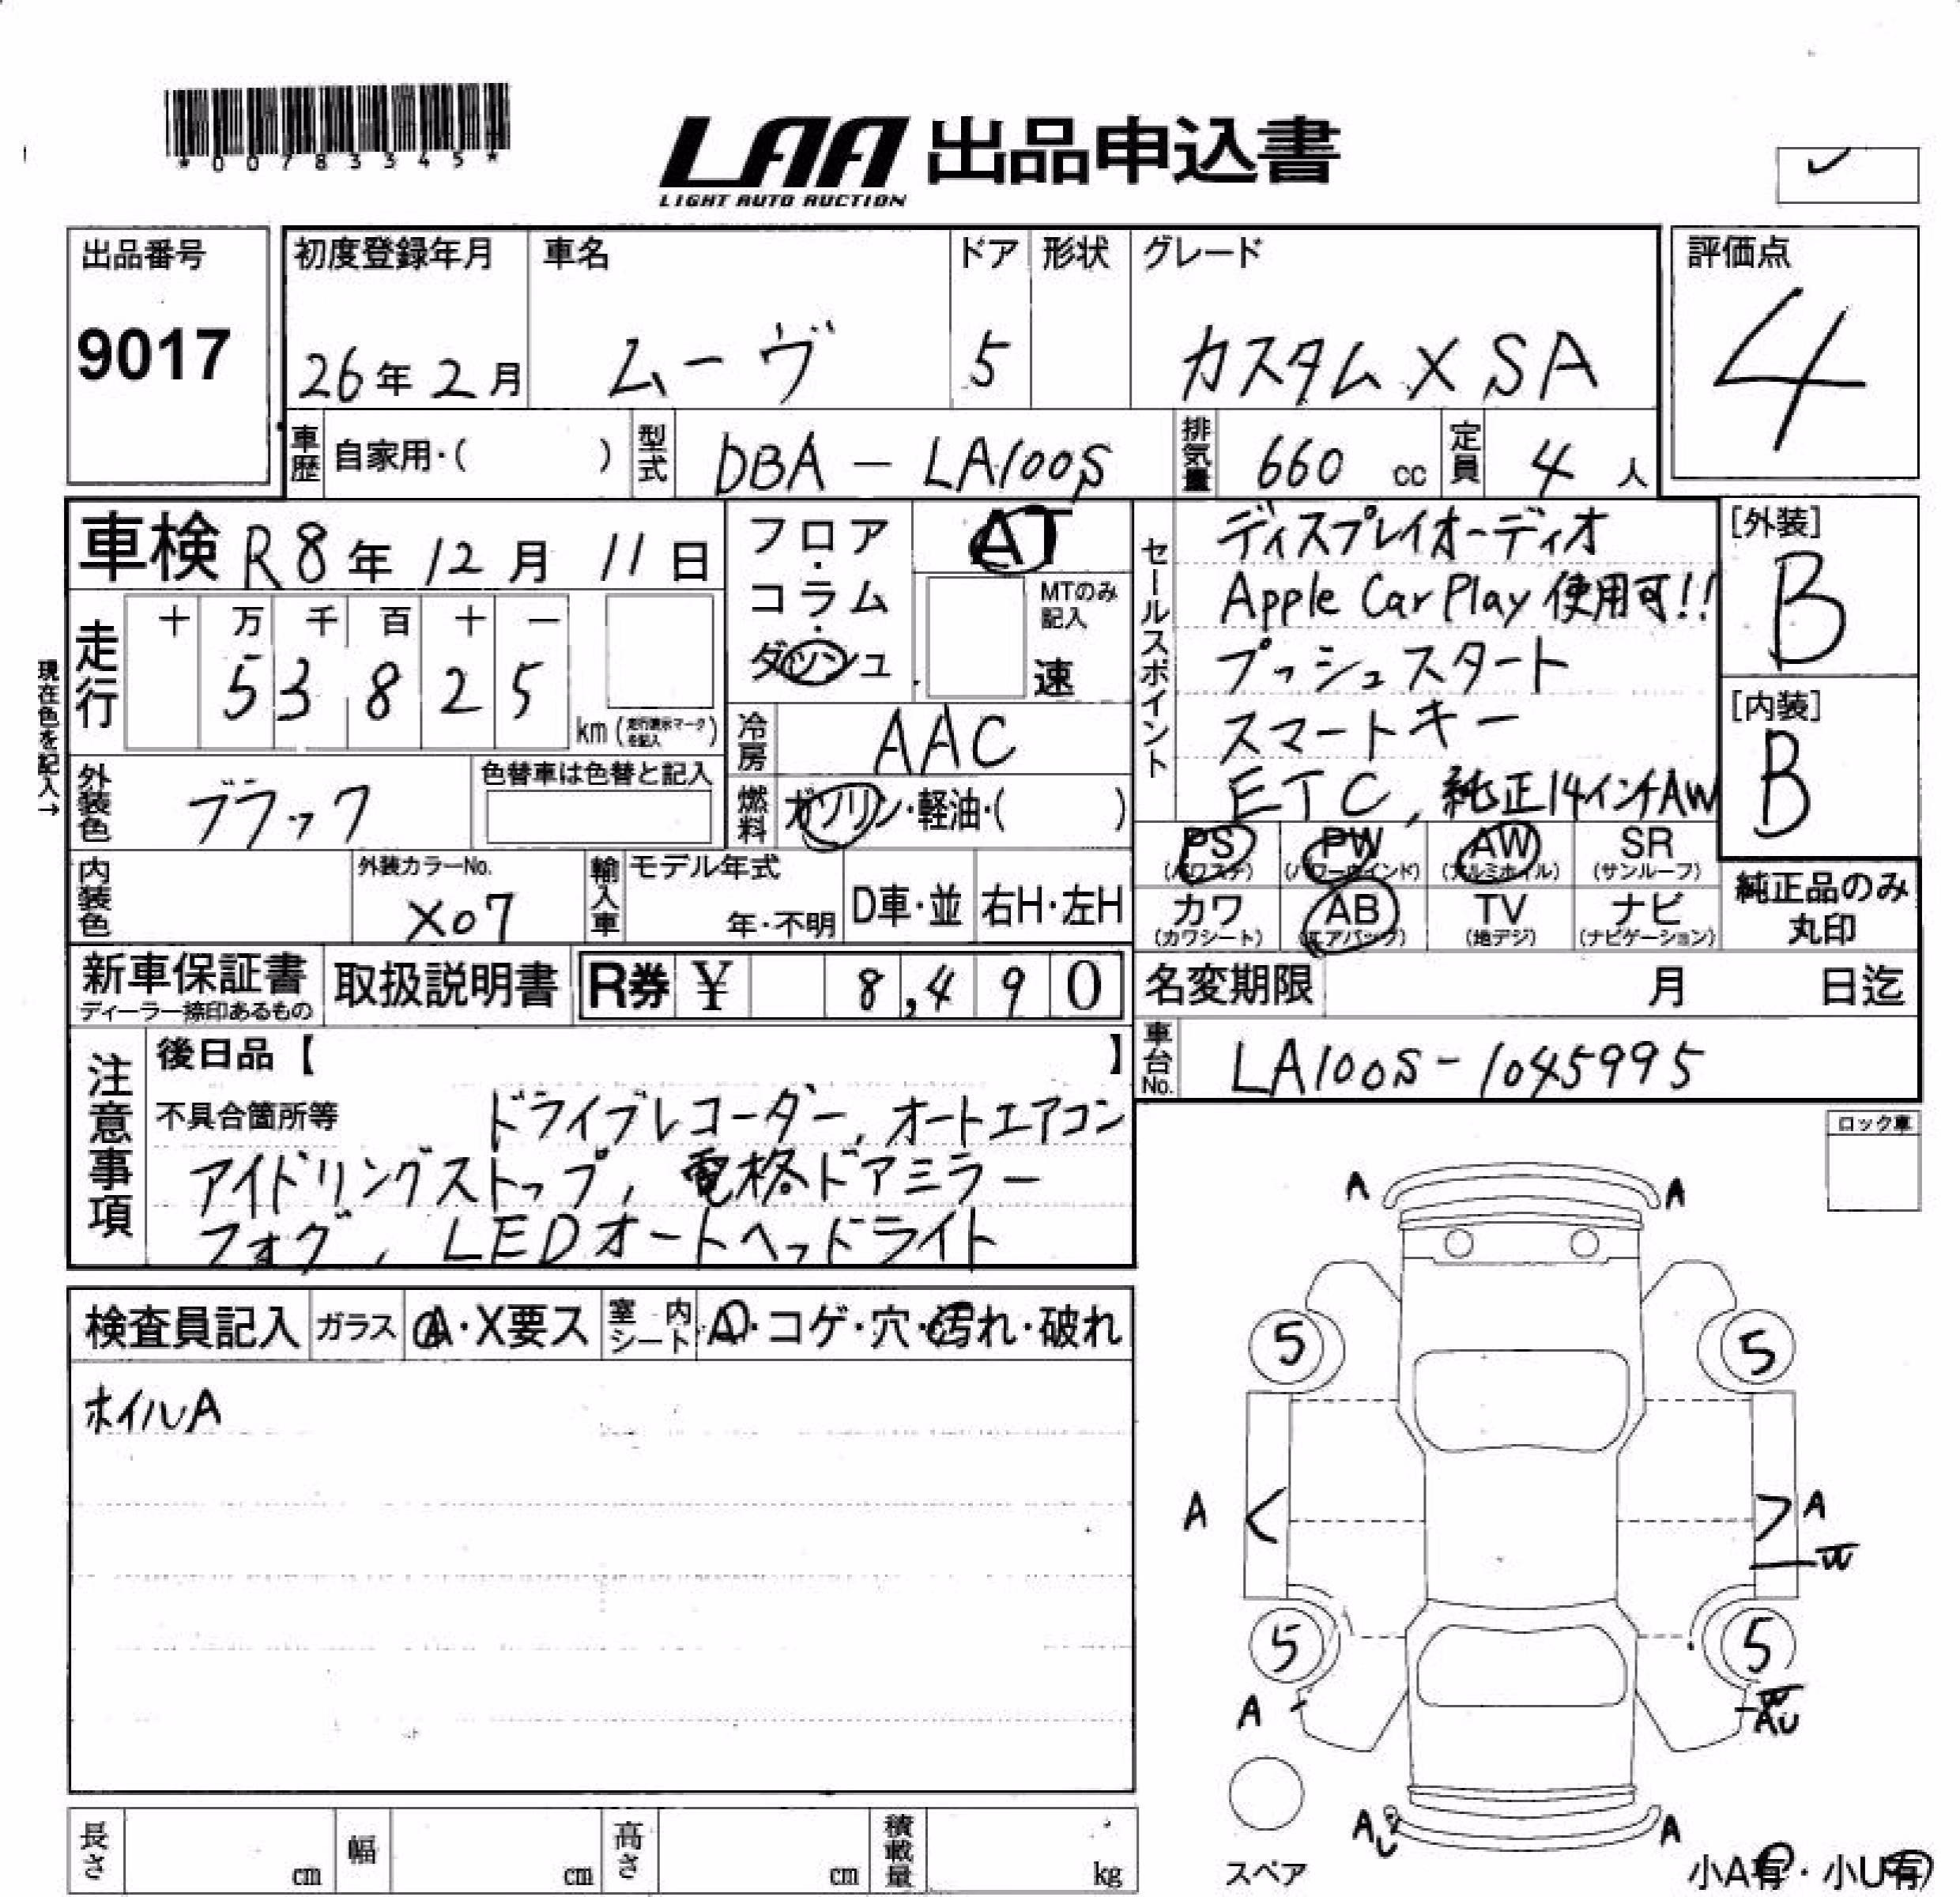 *00783345*
LAA 出品申込書
LIGHT AUTO AUCTION
出品番号
9017
初度登録年月
26年2月
車名
ムーヴ
ドア
5
形状
グレード
カスタム X SA
評価点
4
車歴
自家用・( )
型式
DBA - LA100S
排気量
660 cc
定員
4 人
車検 R8年 12月 11日
走行
十 万 千 百 十 一
5 3 8 2 5
km (走行表示マークを記入)
現在色を記入→
フロア・コラム・ダッシュ
AT
MTのみ記入
速
冷房
AAC
燃料
ガソリン・軽油・( )
セールスポイント
ディスプレイオーディオ
Apple CarPlay 使用可!!
プッシュスタート
スマートキー
ETC, 純正14インチAW
[外装]
B
[内装]
B
外装色
ブラック
色替車は色替と記入
内装色
外装カラーNo.
X07
輸入車
モデル年式
年・不明
D車・並
右H・左H
PS
(パワステ)
PW
(パワーウインド)
AW
(アルミホイル)
SR
(サンルーフ)
カワ
(カワシート)
AB
(エアバッグ)
TV
(地デジ)
ナビ
(ナビゲーション)
純正品のみ
丸印
新車保証書
ディーラー捺印あるもの
取扱説明書
R券 ¥ 8,490
名変期限 月 日迄
車台No.
LA100S-1045995
注意事項
後日品【 】
不具合箇所等
ドライブレコーダー, オートエアコン
アイドリングストップ, 電格ドアミラー
フォグ, LEDオートヘッドライト
ロック車
検査員記入
ガラス
A・X要ス
室内シート
A・コゲ・穴・汚れ・破れ
ホイルA
A A
5 5
A A
W
5 5
A
W
AU
AU A
スペア
小A有・小U有
長さ cm
幅 cm
高さ cm
積載量 kg